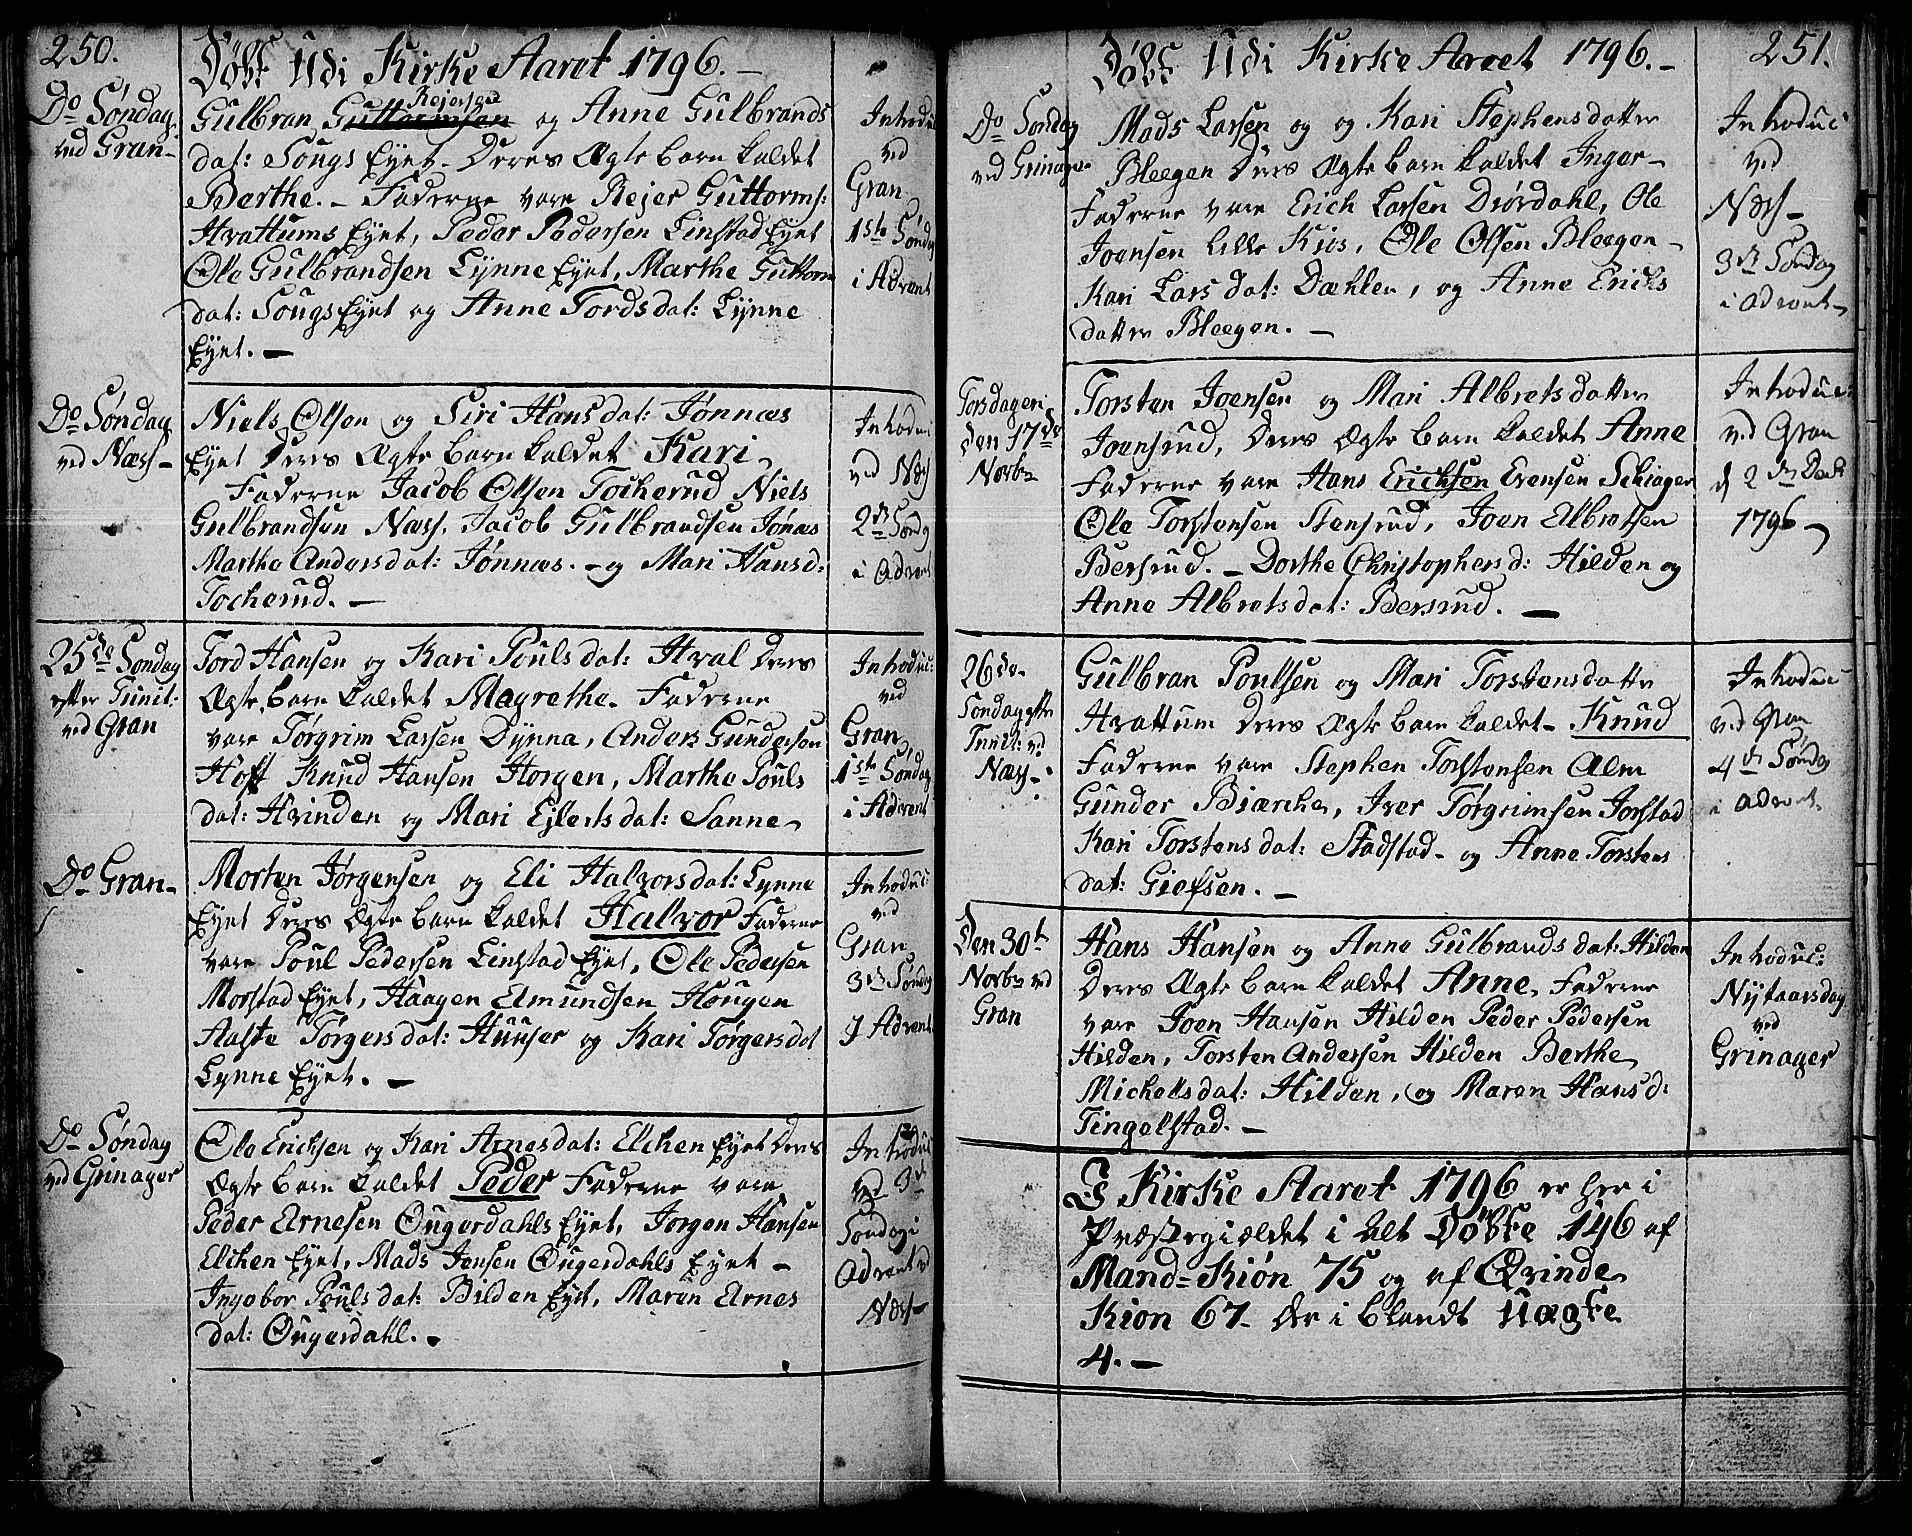 250.
Døbt Udi Kirke Aaret 1796.-
Do Søndag
ved Gran-
Rejersøn
Gulbran Guttormsøn og Anne Gulbrands
dat: Sougs Eyet. Deres Ægte barn kaldet
Berthe. - Faderne vare Rejer Guttorms:
Hvattums Eyet, Peder Pedersen Linstad Eyet
Ole Gulbrandsen Lynne Eyet, Marthe Guttorm
dat: Sougs Eyet og Anne Tordsdat: Lynne
Eyet. -
Introduc
ved
Gran
1ste Søndag
i Advent
Do Søndag
ved Næss-
Niels Olsen og Siri Hansdat: Jønnæs
Eyet Deres Ægte barn kaldet Kari-
Faderne Jacob Olsen Tocherud Niels
Gulbrandsen Næss, Jacob Gulbrandsen Jønæs
Marthe Andersdat: Jønnæs. - og Mari Hansd:
Tocherud. -
Introduc
ved Næss
2den Sønd
i Advent
25de Søndag
efter Trinit:
ved Gran
Tord Hansen og Kari Poulsdat: Hval Deres
Ægte barn kaldet Magrethe. Faderne
vare Tørgrim Larsen Dynna, Anders Gundersen
Hoft Knud Hansen Horgen, Marthe Pouls
dat: Hvinden og Mari Ejlertsdat: Sanne-
Introduc:
ved
Gran
1ste Søndag
i Advent
Do Gran-
Morten Jørgensen og Eli Halvorsdat: Lynne
Eyet Deres Ægte barn kaldet Halvor Faderne
vare Poul Pedersen Linstad Eyet, Ole Pedersen
Morstad Eyet, Haagen Elmundsen Hougen
Aaste Tørgersdat: Huuser og Kari Tørgersdat
Lynne Eyet. -
Introduc:
ved
Gran
3de Søndag
J Advent
Do Søndag
ved Grinager
Ole Ericksen og Kari Arnesdat: Elchen Eyet Deres
Ægte barn kaldet Peder Faderne vare
Peder Arnesen Ougerdahls Eyet, Jørgen Hansen
Elchen Eyet, Mads Jensen Ougerdahls Eyet -
Ingebor Poulsdat: Bilden Eyet, Maren Arnes
dat: Ougerdahl. -
Introduc
ved 3de
Søndag i
Advent vd
Næss-
251.
Døbt Udi Kirke Aaret 1796.-
Do Søndag
ved Grinager
Mads Larsen og og Kari Stephensdatter
Bleegen Deres Ægte barn kaldet Inger-
Faderne vare Erich Larsen Diørdahl, Ole
Joensen Lille Kios, Ole Olsen Bleegen-
Kari Larsdat: Dæhlen, og Anne Ericks
datter Bleegen. -
Introduc
ved
Næss-
3de Søndag
i Advent-
Torsdagen
den 17de
Novbr
Torsten Joensen og Mari Albretsdatter
Joensrud, Deres Ægte barn kaldet Anne
Faderne vare Hans Ericksen Evensen Schiager
Ole Torstensen Stensrud, Joen Elbretsen
Bersrud. - Dorthe Christophersd: Hilden og
Anne Albretsdat: Bersrud. -
Introduc:
ved Gran
d 2den Decb
1796-
26de
Søndag efter
Trinit: ved
Næss-
Gulbran Poulsen og Mari Torstensdatter
Hvattum Deres Ægte barn kaldet- Knud
Faderne vare Stephen Torstensen Alm
Gunder Biærche, Iver Tørgrimsen Jorstad
Kari Torstensdat: Stadstad- og Anne Torstens
dat: Giefsen. -
Introduc
ved Gran
4de Søndag
i Advent.
Den 30te
Novbr ved
Gran
Hans Hansen og Anne Gulbrandsdat: Hilden
Deres Ægte barn kaldet Anne, Faderne
vare Joen Hansen Hilden Peder Pedersen
Hilden, Torsten Andersen Hilden Berthe
Michelsdat: Hilden, og Maren Hansd:
Tingelstad. -
Introduc:
Nytaarsdag
ved
Grinager
I Kirke Aaret 1796 er her i
Præstegieldet i alt Døbte 146 af
Mand-Kiøn 75 og af Qvinde
Kion 67- der i blandt Uægte
4. -